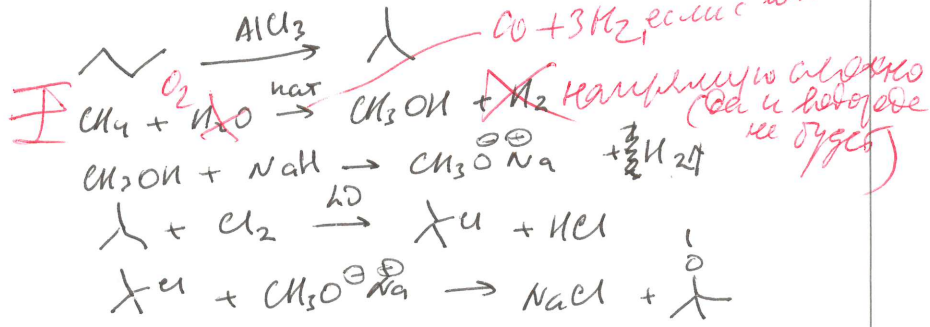 AlCl3 → CO + 3H2, если с
O2
CH4 + H2O кат → CH3OH + H2 напрямую сложно
(да и водорода
не будет)
CH3OH + NaH → CH3O⊖ Na⊕ + H2↑
+ Cl2 hν → Cl + HCl
Cl + CH3O⊖ Na⊕ → NaCl + O